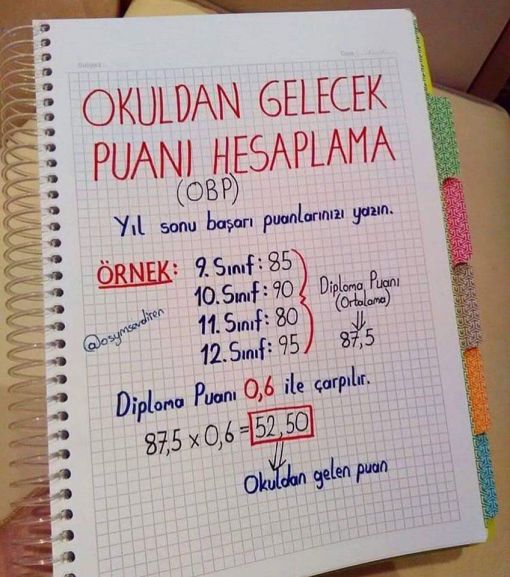 OKULDAN GELECEK
PUANI HESAPLAMA
(OBP)
Yıl sonu başarı puanlarınızı yazın.
ÖRNEK: 9. Sınıf: 85
10. Sınıf: 90
11. Sınıf: 80
12. Sınıf: 95
Diploma Puanı
(Ortalama)
87,5
@osymsevdiren
Diploma Puanı 0,6 ile çarpılır.
87,5 x 0,6 = 52,50
Okuldan gelen puan